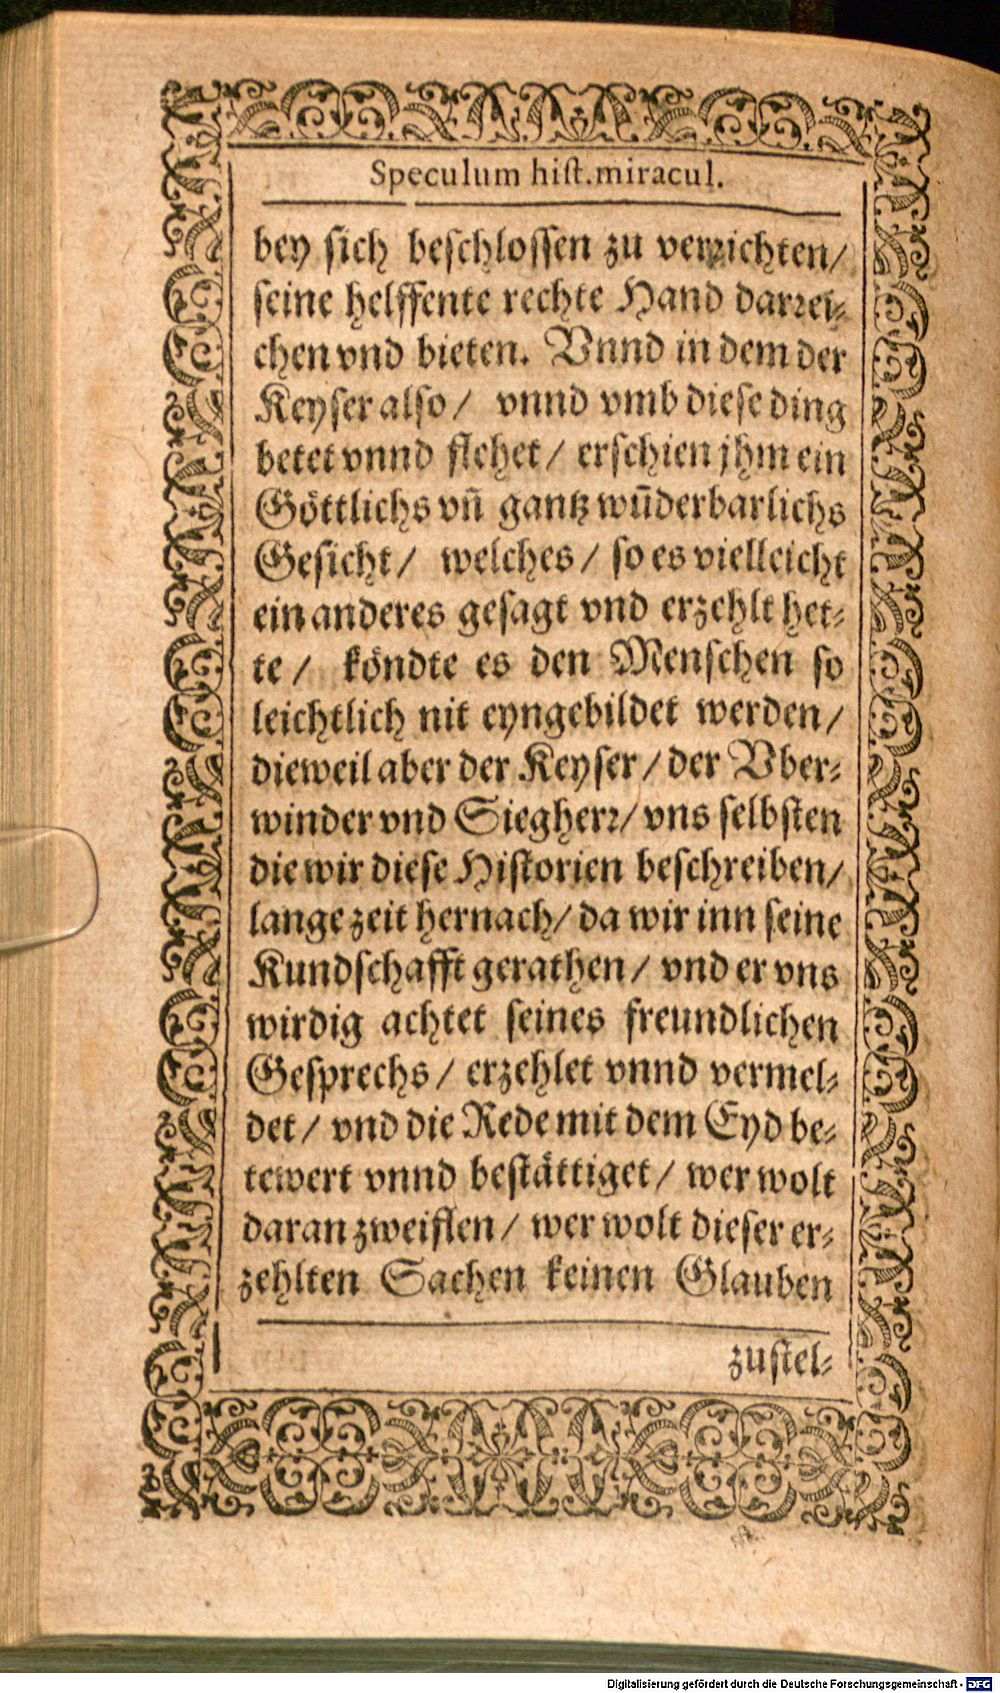 Speculum hiſt. miracul.
bey ſich beſchloſſen zu verꝛichten/
ſeine helffente rechte Hand darꝛei⸗
chen vnd bieten. Vnnd in dem der
Keyſer alſo/ vnnd vmb dieſe ding
betet vnnd flehet/ erſchien jhm ein
Göttlichs vn̄ gantz wūderbarlichs
Geſicht/ welches/ ſo es vielleicht
ein anderes geſagt vnd erzehlt het⸗
te/ köndte es den Menſchen ſo
leichtlich nit eyngebildet werden/
dieweil aber der Keyſer/ der Vber⸗
winder vnd Siegherꝛ/ vns ſelbſten
die wir dieſe Hiſtorien beſchreiben/
lange zeit hernach/ da wir inn ſeine
Kundſchafft gerathen/ vnd er vns
wirdig achtet ſeines freundlichen
Geſprechs/ erzehlet vnnd vermel⸗
det/ vnd die Rede mit dem Eyd be⸗
tewert vnnd beſtättiget/ wer wolt
daran zweiflen/ wer wolt dieſer er⸗
zehlten Sachen keinen Glauben
zuſtel⸗
Digitalisierung gefördert durch die Deutsche Forschungsgemeinschaft - DFG